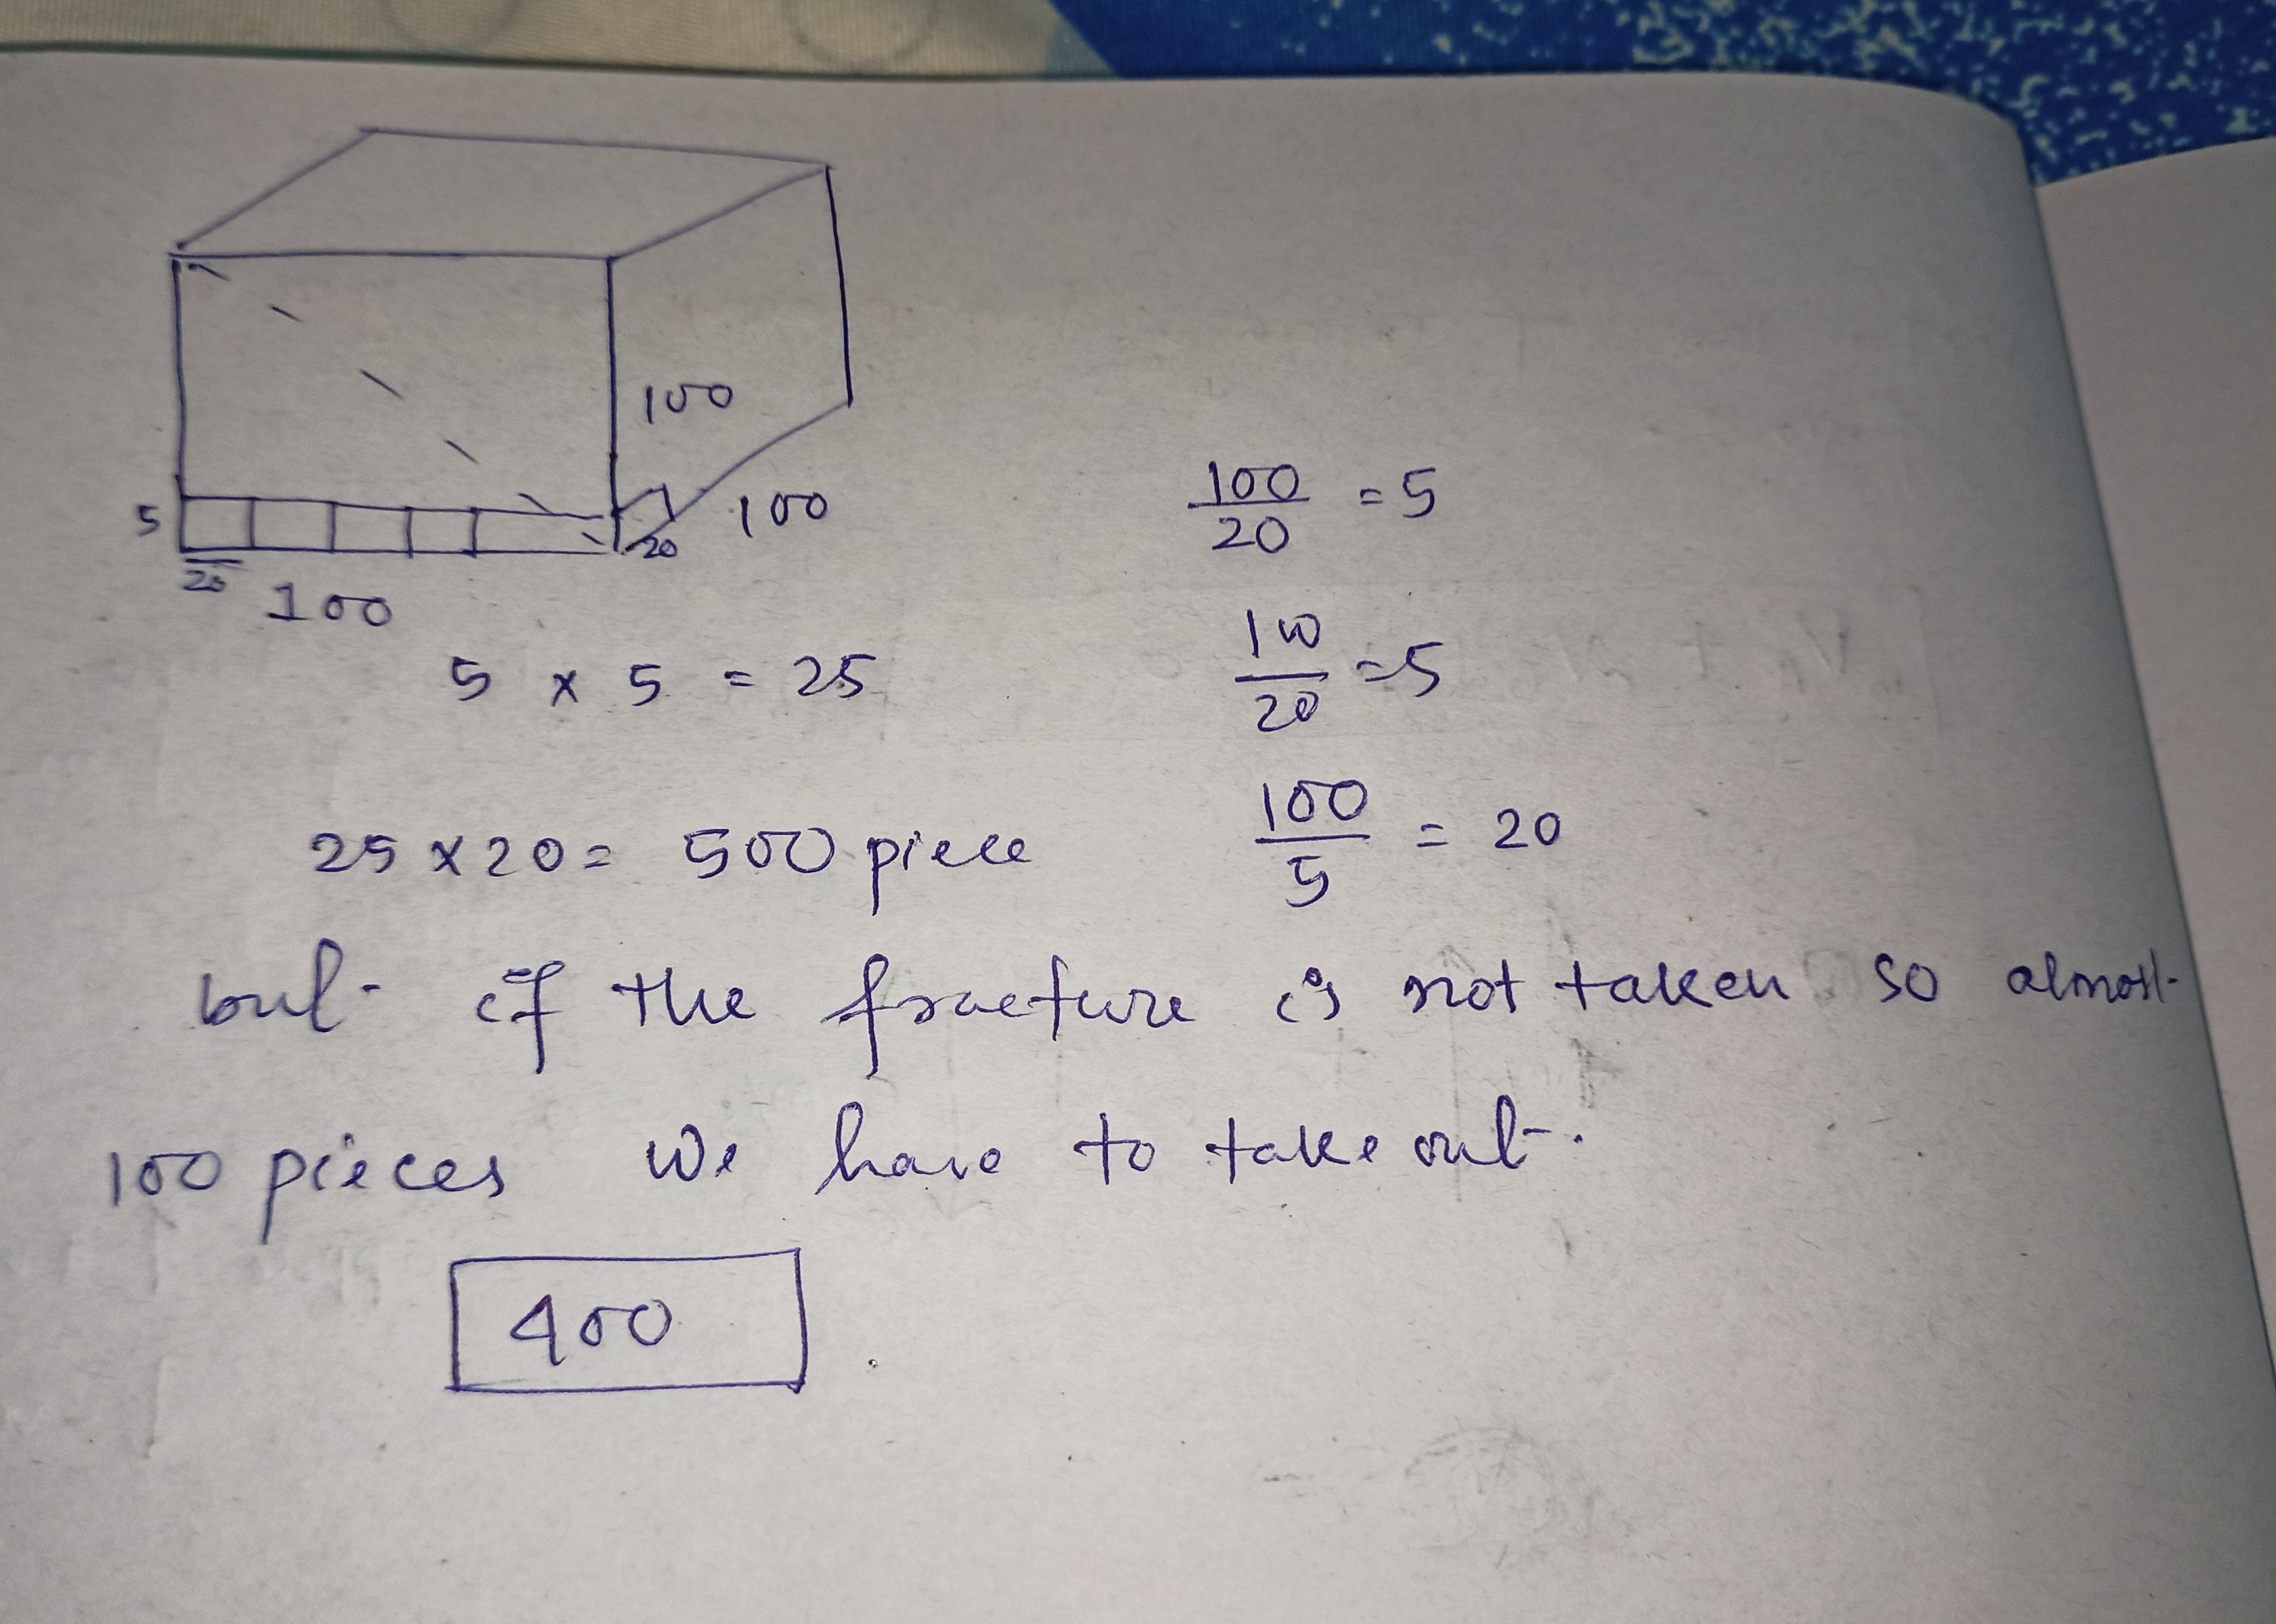 100
100
5
20
20
100
100/20 = 5
5 x 5 = 25
100/20 = 5
25 x 20 = 500 piece
100/5 = 20
but if the fracture is not taken so almost
100 pieces we have to take out.
400